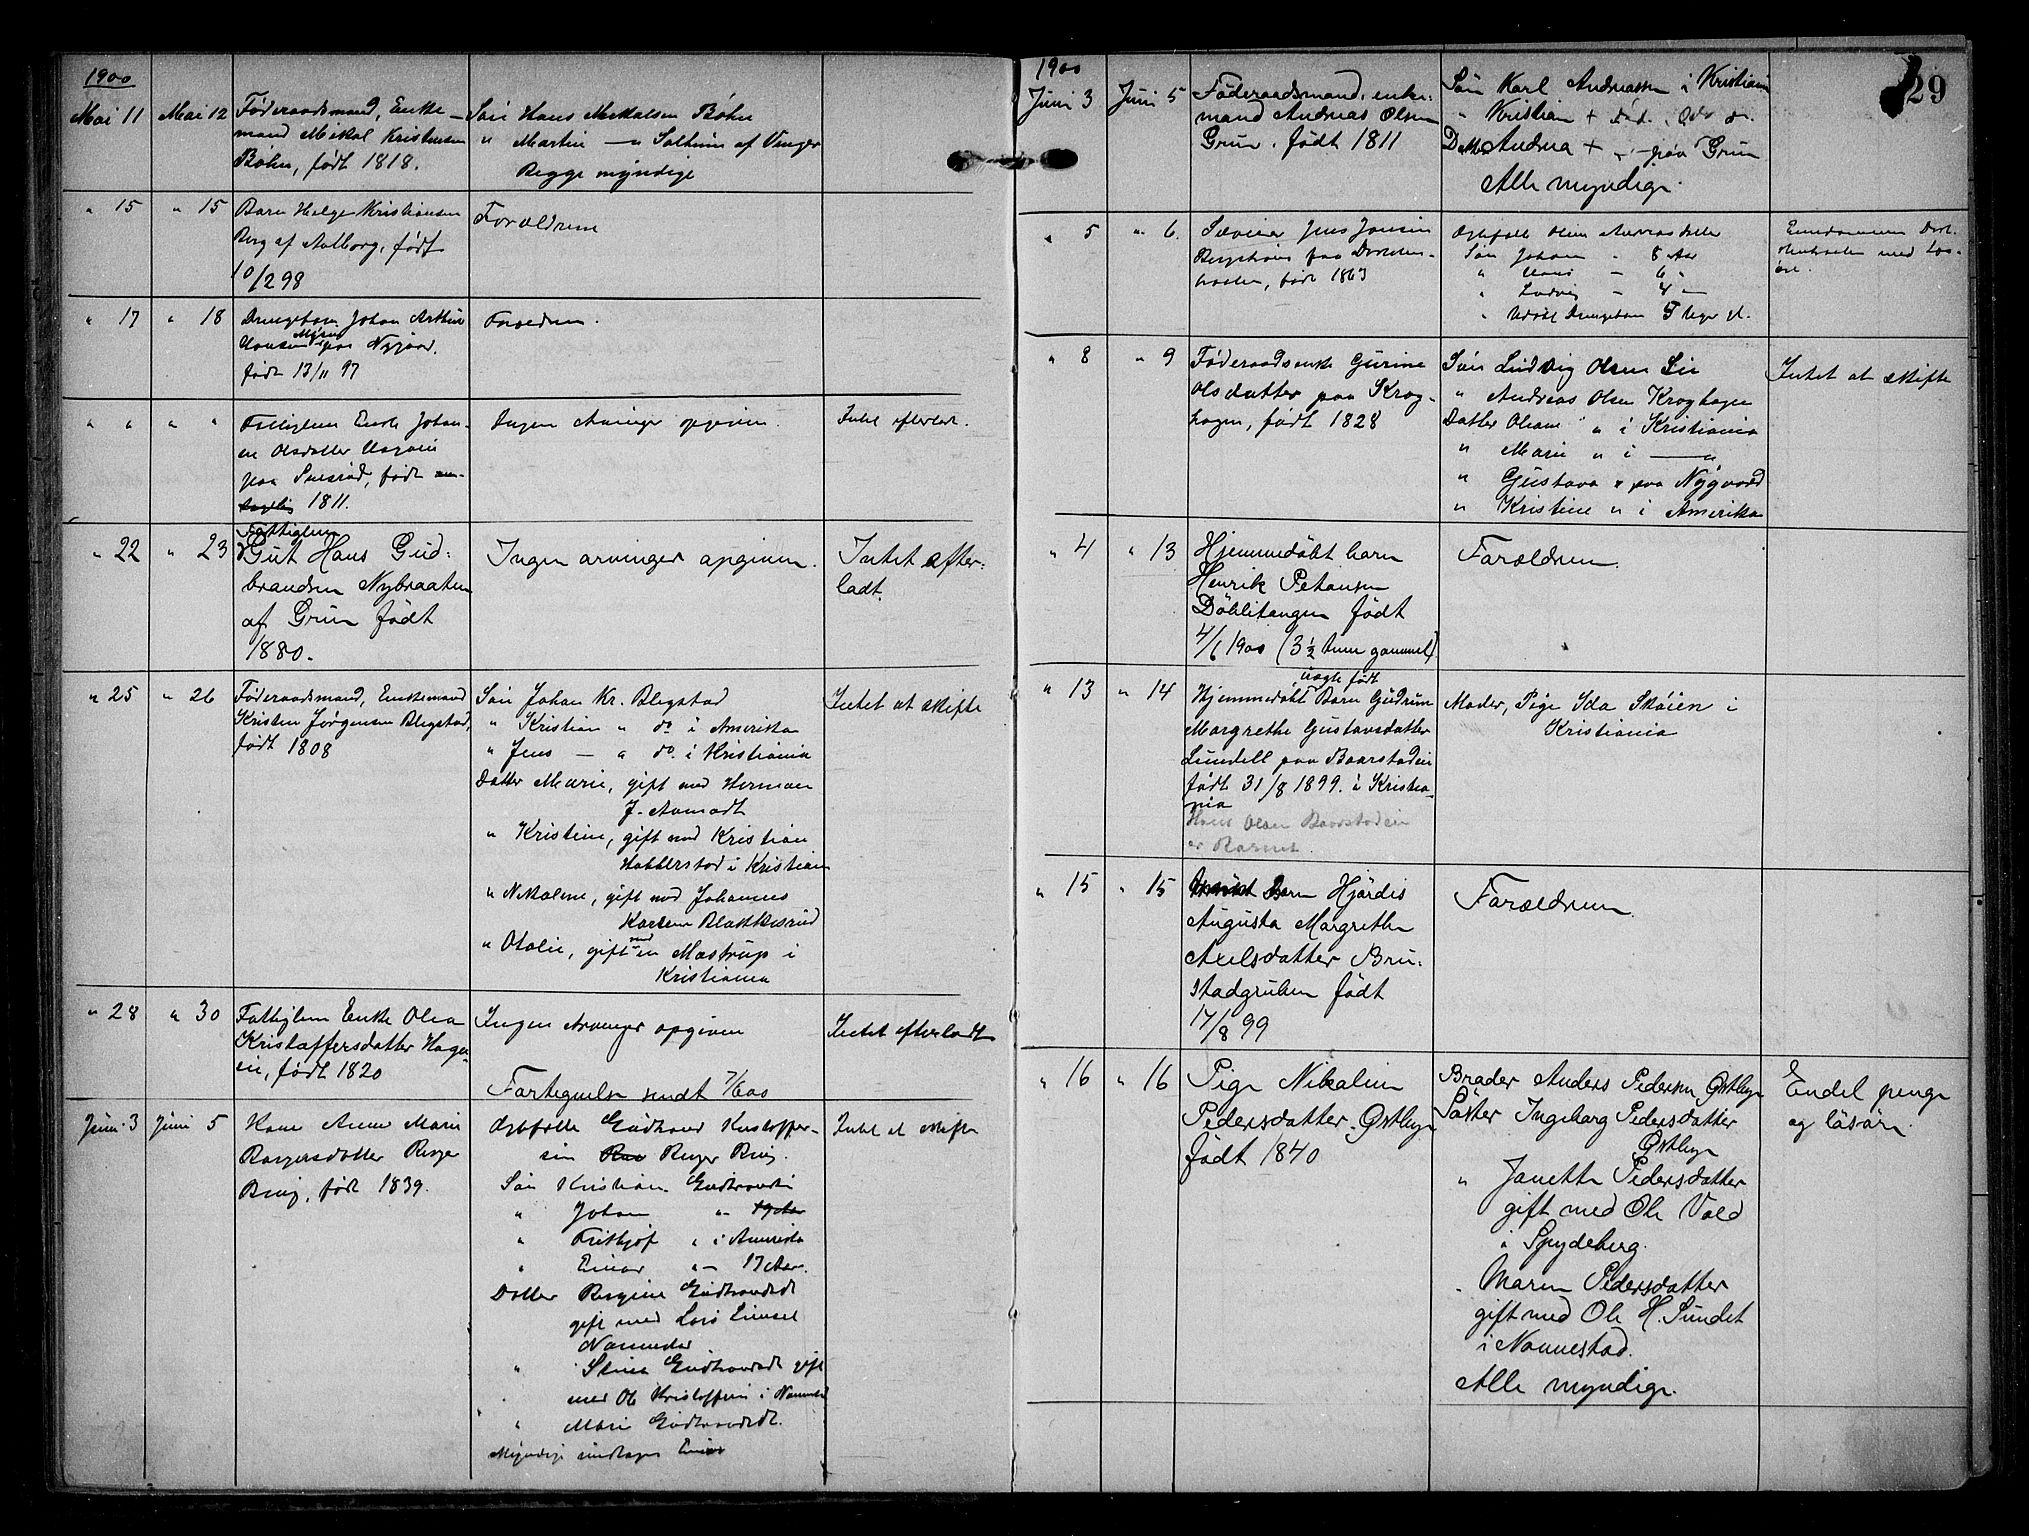 1900
Mai 11 Mai 12 Føderaadsmand, Enke-
mand Mikal Kristensen
Bøhn, født 1818.
Søn Hans Mikalsen Bøhn
" Martin — " Solheim af Vinger
Begge myndige
" 15 " 15 Barn Helge Kristiansen
Berg af Aalborg, født
10/2 98
Forældrene
" 17 " 18 Drengebarn Johan Arthur
Hansen Myrer paa Nygaard,
født 13/11 97
Forældrene.
" " " " Fattiglem Enke Johan-
ne Olsdatter
paa født
1811.
Ingen Arvinger opgiven.
Intet efterladt.
" 22 " 23 Fattiglem
Gut Hans Gud-
brandsen Nybraaten
af Grue født
1880.
Ingen arvinger opgiven.
Intet efter-
ladt.
" 25 " 26 Føderaadsmand, Enkemand
Kristen Jørgensen Blegstad,
født 1808
Søn Johan Kr. Blegstad
" Kristian " do i Amerika
" Jens — " do i Kristiania
Datter Marie, gift med Herman
J. Aamodt
" Kristine, gift med Kristian
Habberstad i Kristiania
" Nikoline, gift med Johannes
Karlsen Blakkisrud
" Otalie, gift med en Mastrup i
Kristiania
Intet at skifte
" 28 " 30 Fattiglem Enke Olea
Kristoffersdatter Hage-
en, født 1820
Ingen Arvinger opgiven
Fortegnelse sendt 7/6 00
Intet efterladt
Juni 3 Juni 5 Kone Anne Marie
Borgersdatter
Ring, født 1839.
Ægtefælle Gudbrand Kristoffer-
sen Ring.
Søn Kristian Gudbrandsen
" Johan "
" Fritjof " i Amerika
" Einar " 17 Aar.
Datter Regine Gudbrandsdt
gift med Lars
Nannestad
" Stine Gudbrandsdt gift
med Ole Kristoffersen i Nannestad
" Mari Gudbrandsdt.
Myndige undtagen Einar
Intet at skifte
29
1900
Juni 3 Juni 5 Føderaadsmand, enke-
mand Andreas Olsen
Grue. født 1811
Søn Karl Andreassen i Kristiania
" Kristian + død.
Datter Andrea + " paa Grue
Alle myndige.
" 5 " 6. Jens Jensen
født 1863
Ægtefælle Oline Andreasdatter
Søn Johan - 8 Aar
" Hans - 6 "
" Ludvig - 4 "
" Udøbt Drengebarn 5 Uger gl.
Eiendommen
med Løs-
øre.
" 8 " 9 Føderaadsenke Gurine
Olsdatter paa Krog-
hagen, født 1828
Søn Ludvig Olsen Lie
" Andreas Olsen Kroghagen
Datter Oleane " i Kristiania
" Marie " i — "
" Gustava " paa Nygaard
" Kristine " i Amerika
Intet at skifte
" 4 " 13 Hjemmedøbt barn
Henrik Petansen
Døhlitangen født
4/6 1900 (3½ time gammel)
Forældrene.
" 13 " 14 Hjemmedøbt uægte født Barn Gudrun
Margrethe Gustavsdatter
Lundell paa Baarstadeie
født 31/8 1899. i Kristia-
nia
Hans Olsen Baarstadeie
er Barnet
Moder, Pige Ida Skøien i
Kristiania
" 15 " 15 Barn Hjørdis
Augusta Margrethe
Axelsdatter Bru-
stadgruben født
17/8 99
Forældrene.
" 16 " 16 Pige Nikoline
Pedersdatter Østbye
født 1840
Broder Anders Pedersen Østbye
Søster Ingeborg Pedersdatter
Østbye
" Janette Pedersdatter
gift med Ole Vold
i Spydeberg.
" Maren Pedersdatter
gift med Ole H. Sundet
i Nannestad.
Alle myndige.
Endel penge
og løsøre.